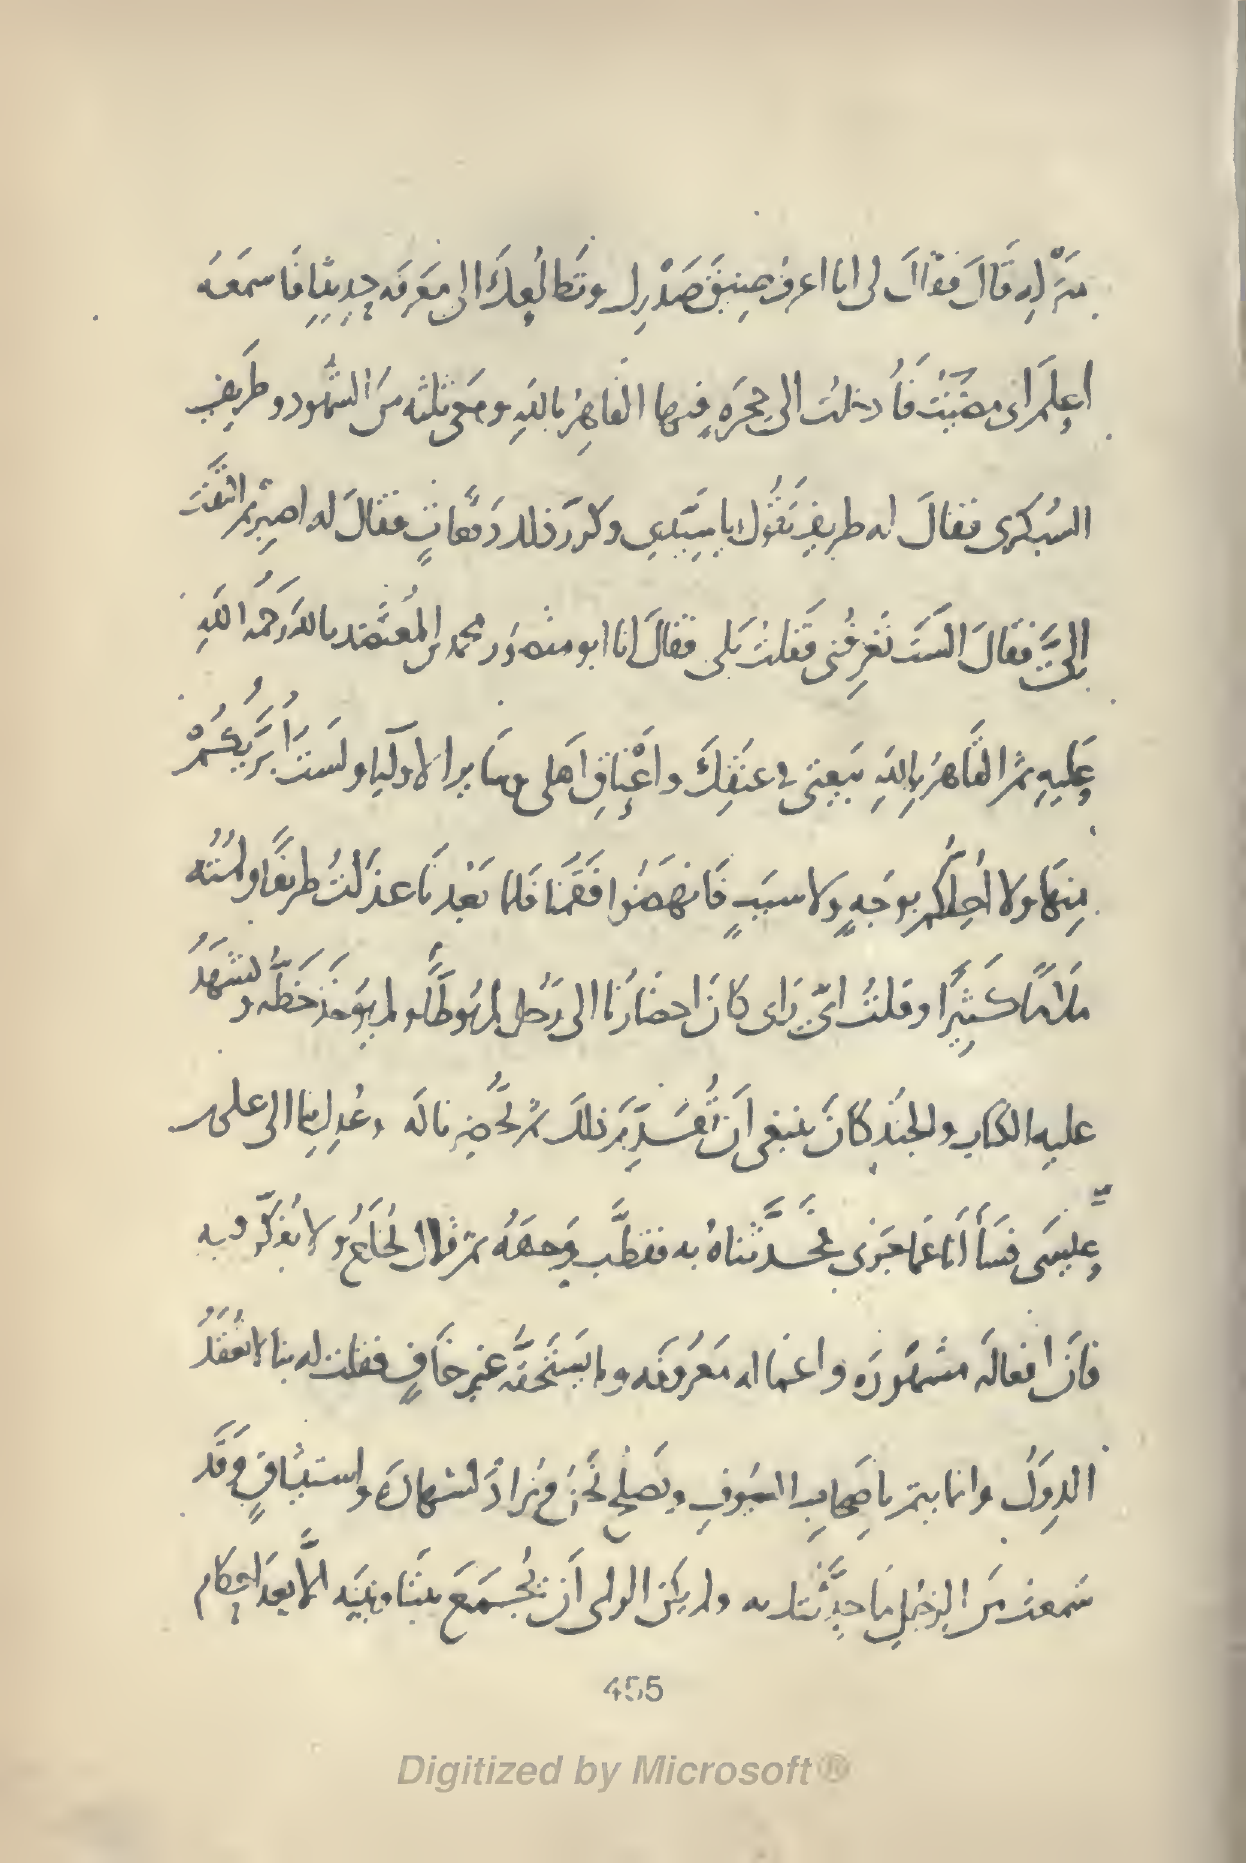 منزله قالَ فقالَ لى انا اعرفُ ضِيقَ صَدْرِك وتَطالُعِكَ الى مَعرفه حديثنا فاسمَعهُ
اعلَم انى مضَيتُ فأُدخلتُ الى حُجرَهٍ فيها القاهرُ باللهِ ومعى ثلثه مِنَ الشهود وطريف
السُبكرى فقالَ له طريف تقُول يا سيّدى وكرّرَ ذلك دَفعاتٍ فقالَ له اصبِر ثم التفتَ
اِلىَّ فقالَ الستَ تَعرِفُنى فقلتُ بَلى فقالَ انا ابو منصُور محمد بن المُعتَضد بالله رَحمهُ اللهِ
عليهِ ثم القاهرُ باللهِ بَيعتى فى عنقِكَ واَعْناقِ اَهلى وسَاير الاوليا ولستُ اُبرّيكُمْ
مِنهَا ولا اُحِلكُم بوَجهٍ ولا سبَبٍ فانهضُوا فقُمنا فلما بَعُدنا عذلتُ طريفًا ولُمتُه
ملامًا كثيرًا وقلتُ اىّ رَاى كانَ احضارُنا الى رَجُل لم يُوطّأ ولم يوخذ خطّه ويشهَدُ
عليه الكتاب والجُند كانَ ينبغى اَن تُقدّم ذلك ثم تُحضِرنا له وعُدِل بنا الى على بن
عِيسَى فسَألنا عما جَرى فحدّثناهُ به فقطّب وَجههُ ثم قال يُخلَعُ ولا يُفكّر فيه
فانّ افعاله مشهُورَه واعماله مَعرُوفَه وما يَستحقّه غير خافٍ فقلت له بنا لا تُعقَدُ
الدوَلُ وانما يتم باصحابِ السُيوفِ ويصلح نحنُ ونُرادُ لشهادةٍ واستيثاقٍ وقَد
سَمعتُ مِنَ الرجُلِ مَا حدّثتك به ولم يكن الراى اَن تُجمَعَ بيننا وبَينَه الّا بعدَ احكام
455
Digitized by Microsoft®